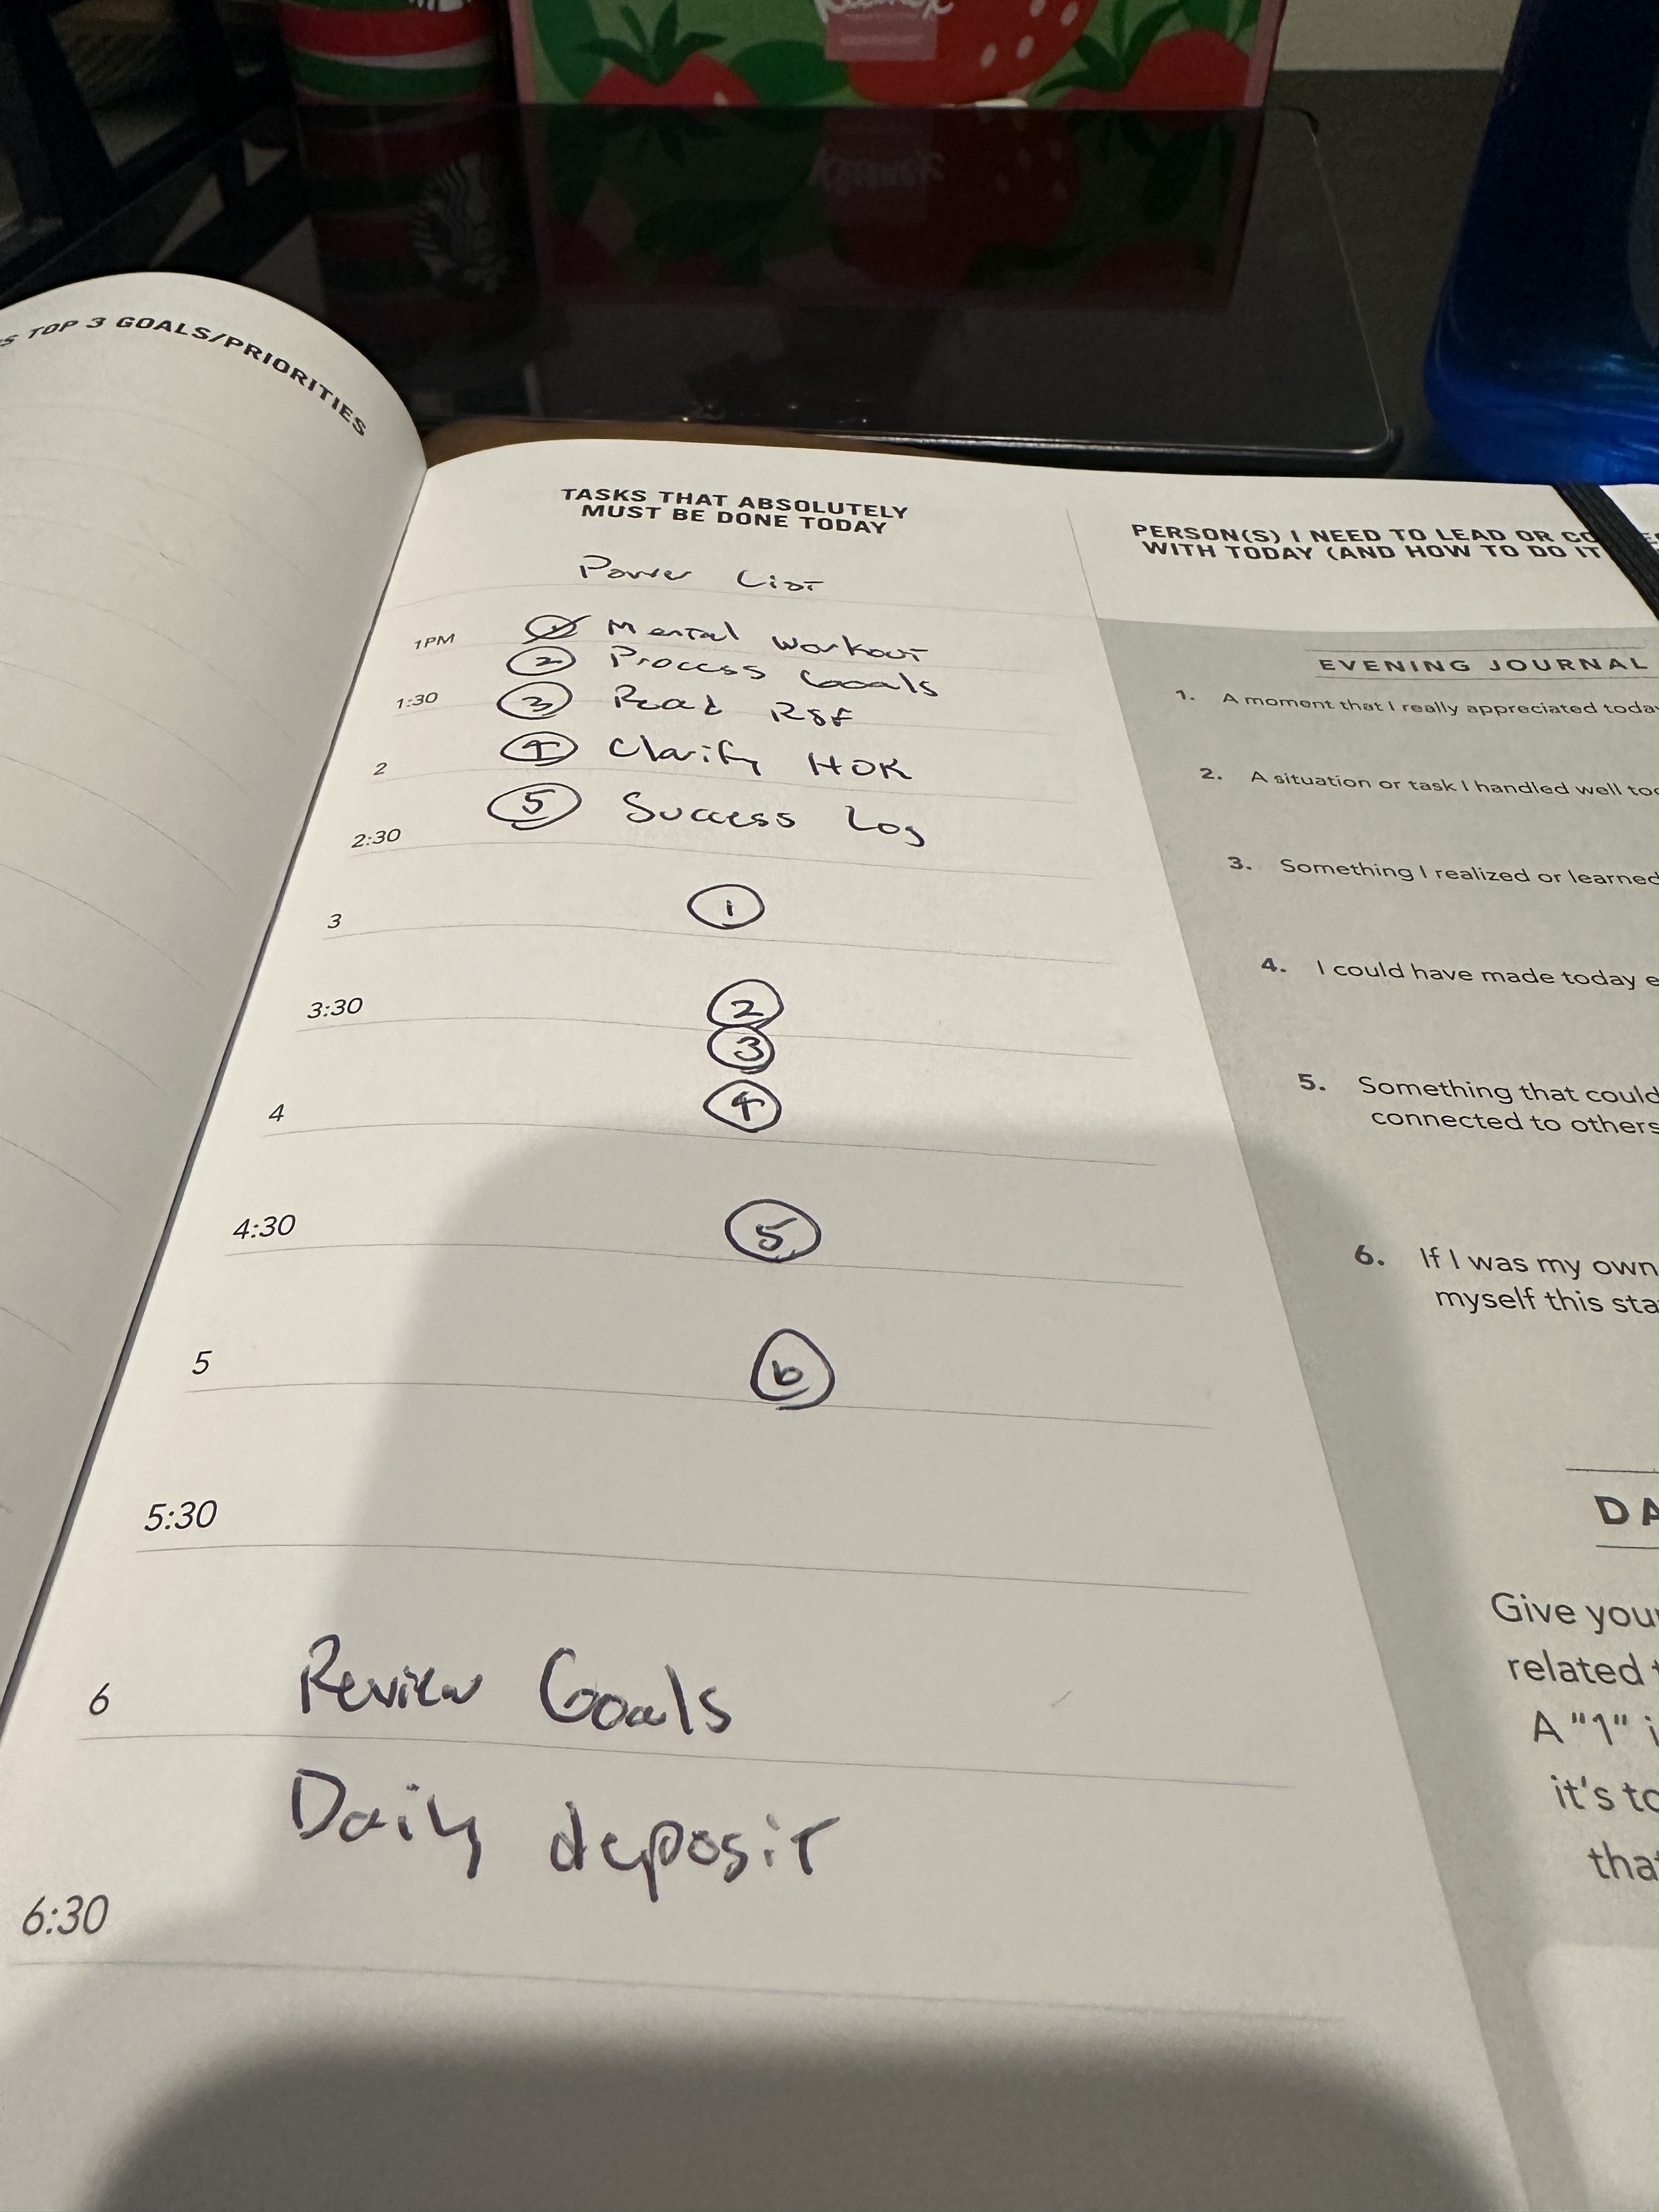 Kleenex
S TOP 3 GOALS/PRIORITIES
TASKS THAT ABSOLUTELY
MUST BE DONE TODAY
Power List
1PM
① Mental Workout
② Process Goals
1:30
③ Read
2
④ Clarify HOK
⑤ Success Log
2:30
3
①
3:30
②
③
4
④
4:30
⑤
5
⑥
5:30
6
Review Goals
Daily deposit
6:30
PERSON(S) I NEED TO LEAD OR CO
WITH TODAY (AND HOW TO DO IT
EVENING JOURNAL
1. A moment that I really appreciated toda
2. A situation or task I handled well to
3. Something I realized or learned
4. I could have made today e
5. Something that could
connected to others
6. If I was my own
myself this sta
DA
Give you
related t
A "1" i
it's to
that